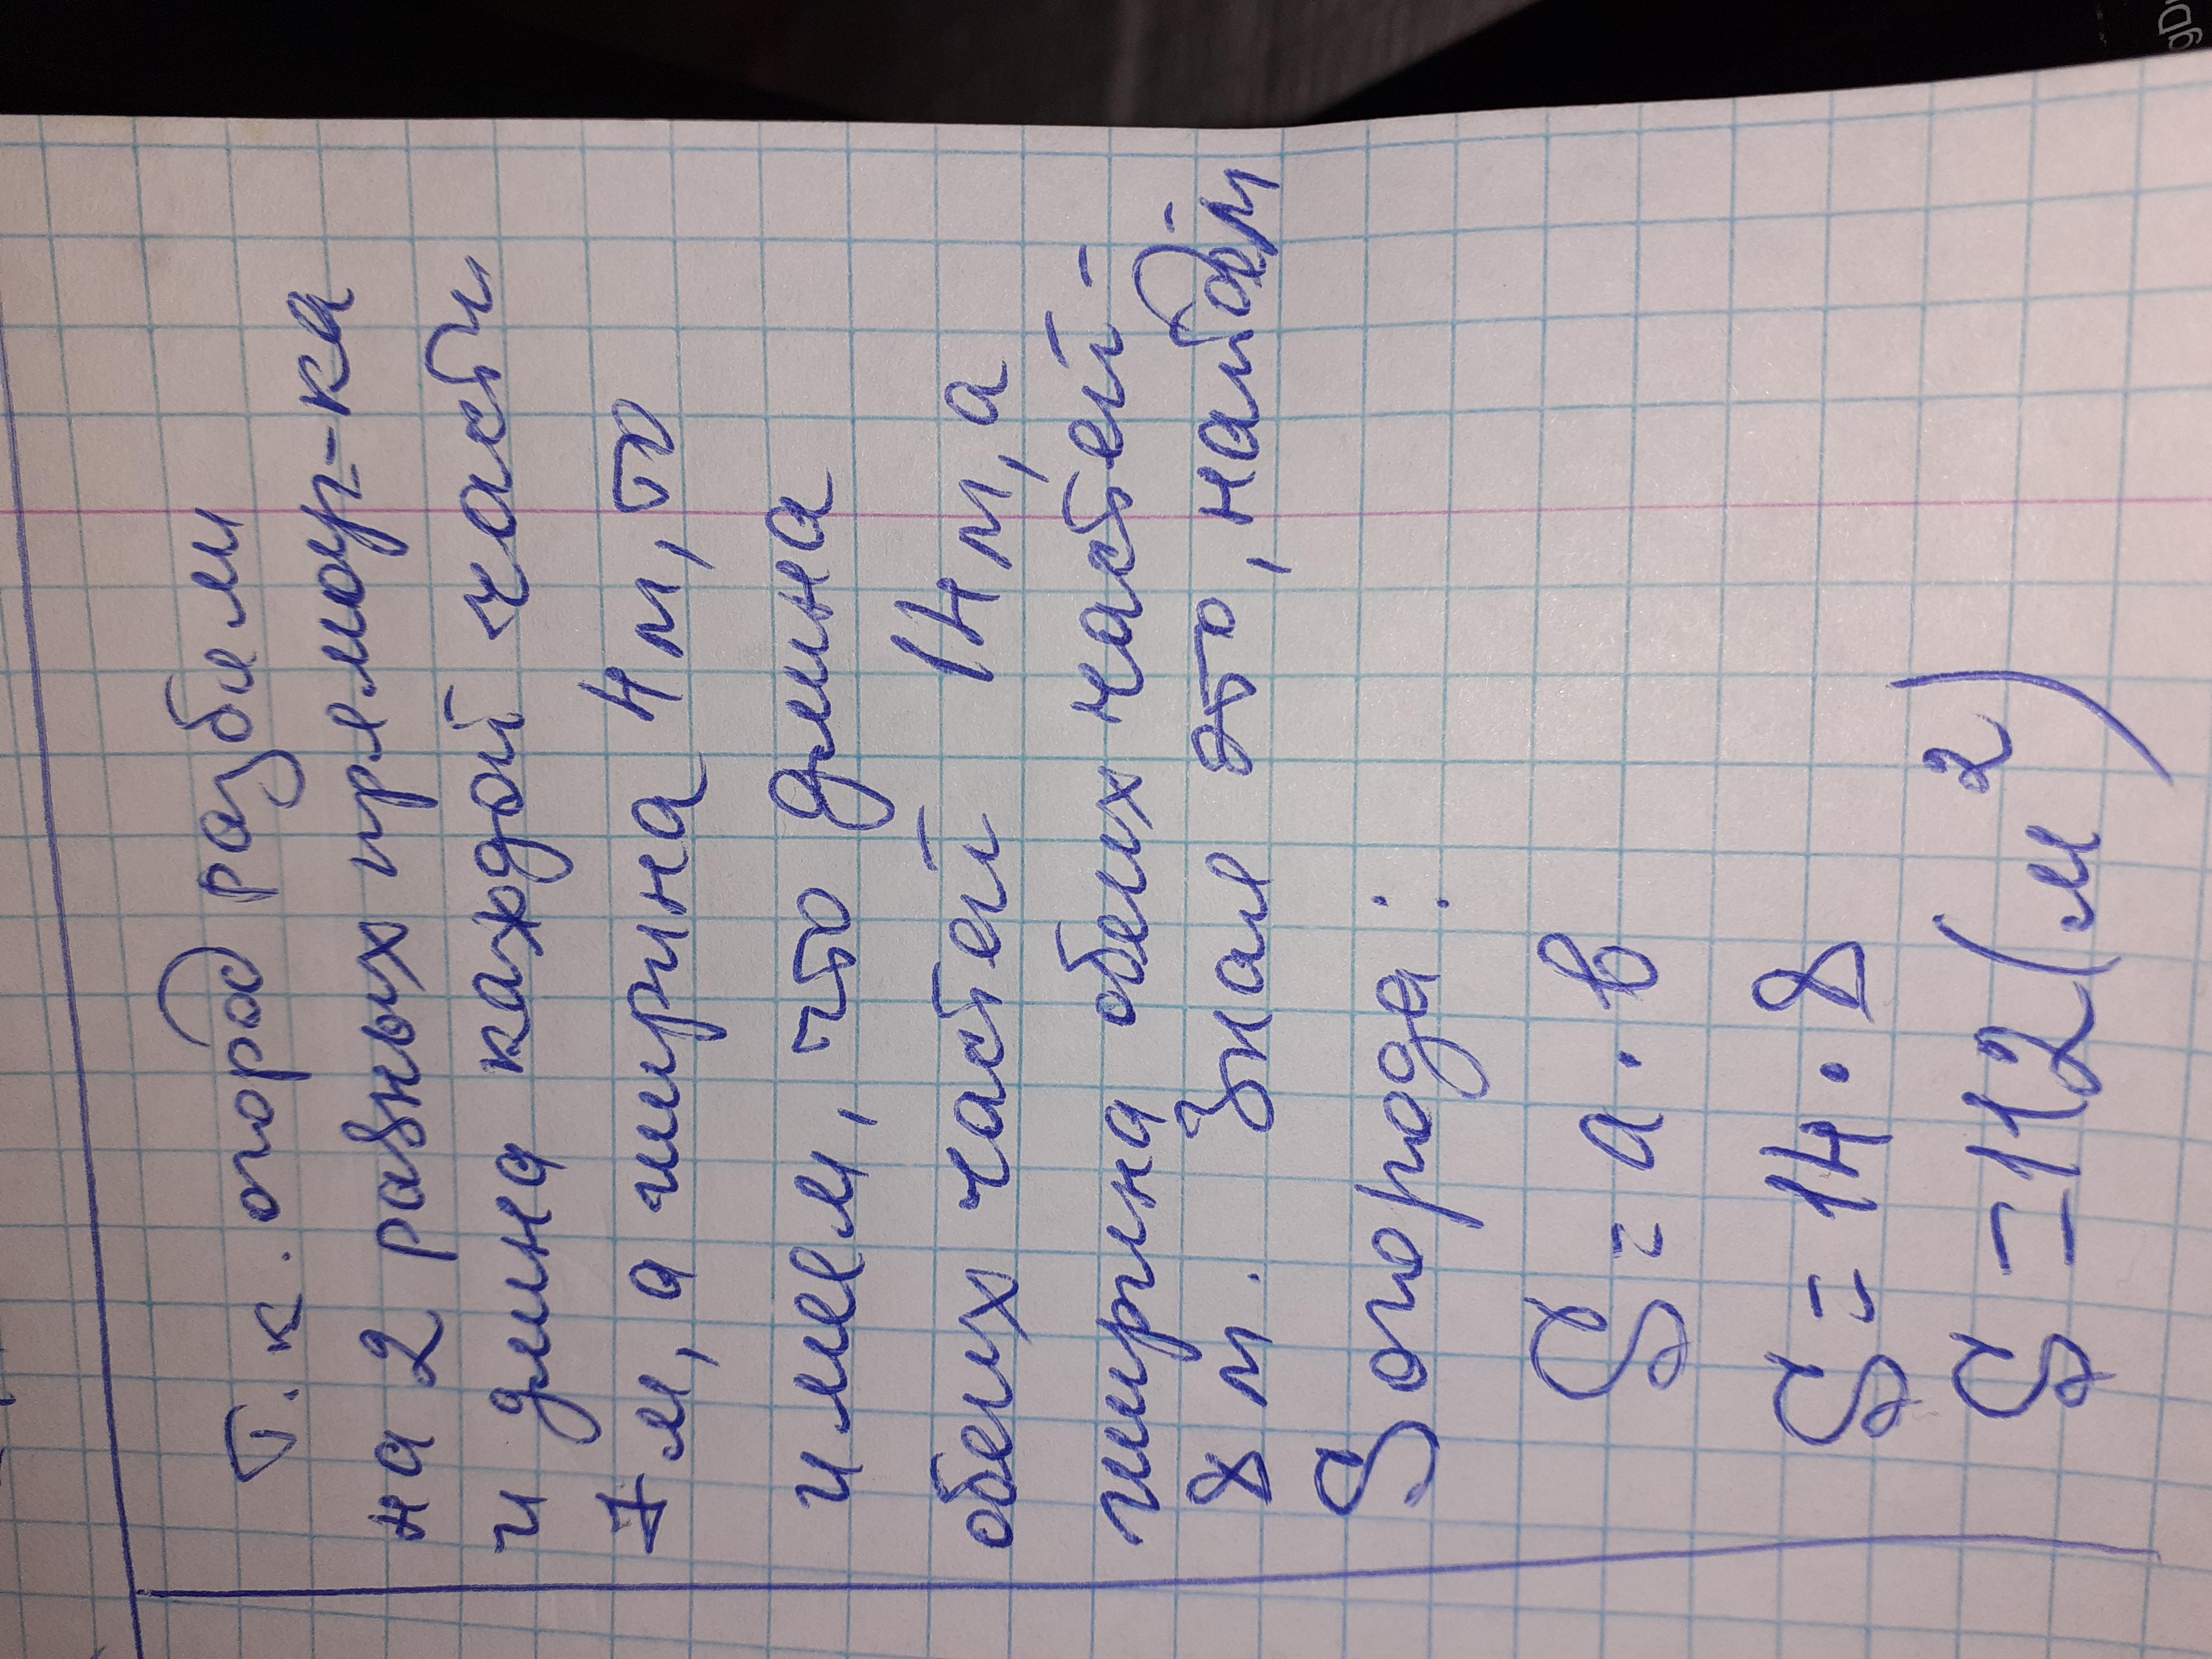 Т.к. огород разбили
на 2 равных прямоуг-ка
и длина каждой части
7 м, а ширина 4 м, то
имеем, что длина
обеих частей 14 м, а
ширина обеих частей -
8 м. Зная это, найдём
S огорода:
S = a · b
S = 14 · 8
S = 112 (м²)